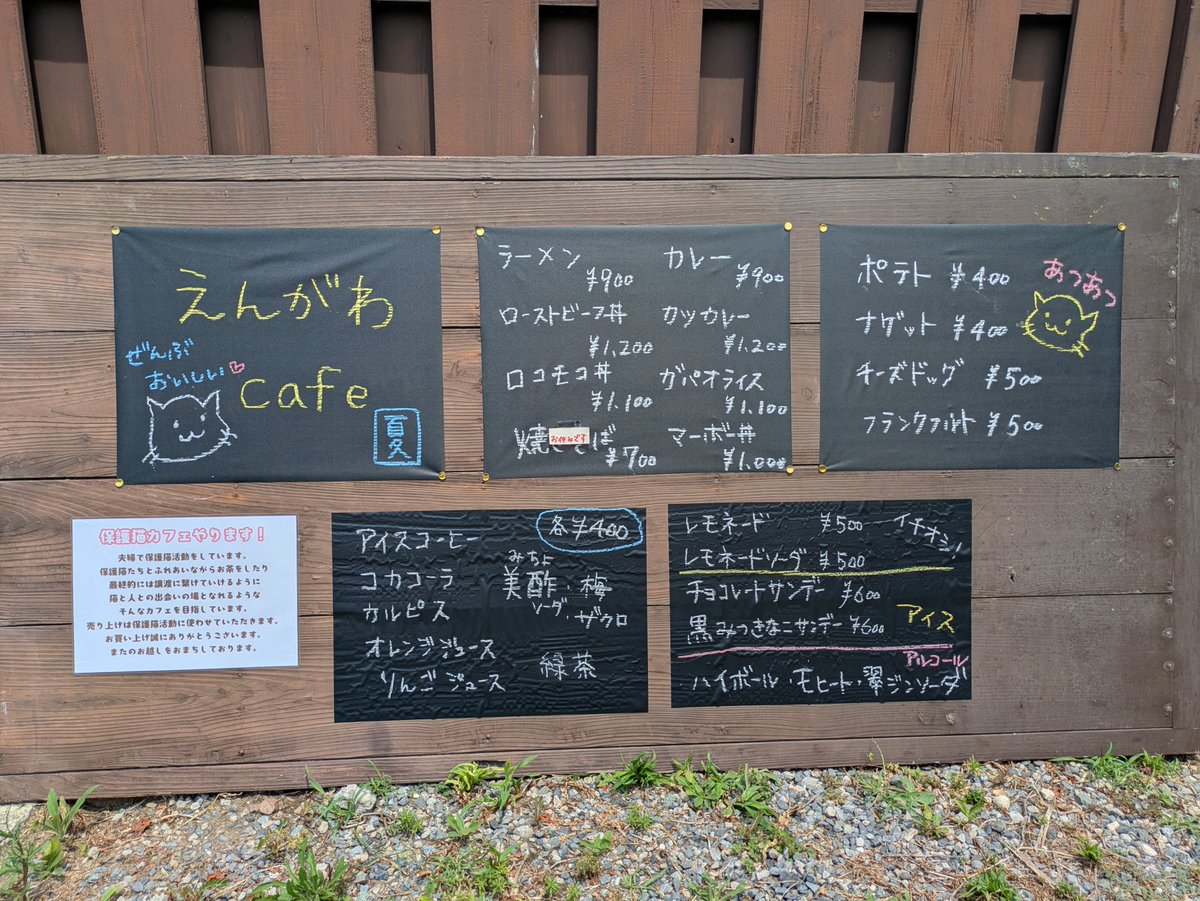 えんがわ
cafe
ぜんぶ
おいしい
夏
ラーメン
¥900
ローストビーフ丼
¥1,200
ロコモコ丼
¥1,100
焼きそば
お休みです
¥700
カレー
¥900
カツカレー
¥1,200
ガパオライス
¥1,100
マーボー丼
¥1,000
ポテト ¥400
ナゲット ¥400
チーズドッグ ¥500
フランクフルト ¥500
あつあつ
保護猫カフェやります!
夫婦で保護猫活動をしています。
保護猫たちとふれあいながらお茶をしたり
最終的には譲渡に繋げていけるように
猫と人との出会いの場となれるような
そんなカフェを目指しています。
売り上げは保護猫活動に使わせていただきます。
お買い上げ誠にありがとうございます。
またのお越しをおまちしております。
各¥400
アイスコーヒー
コカコーラ
カルピス
オレンジジュース
りんごジュース
みちょ
美酢・梅
ソーダ・ザクロ
緑茶
レモネード ¥500 イチオシ!
レモネードソーダ ¥500
チョコレートサンデー ¥600
黒みつきなこサンデー ¥600
アイス
アルコール
ハイボール・モヒート・翠ジンソーダ